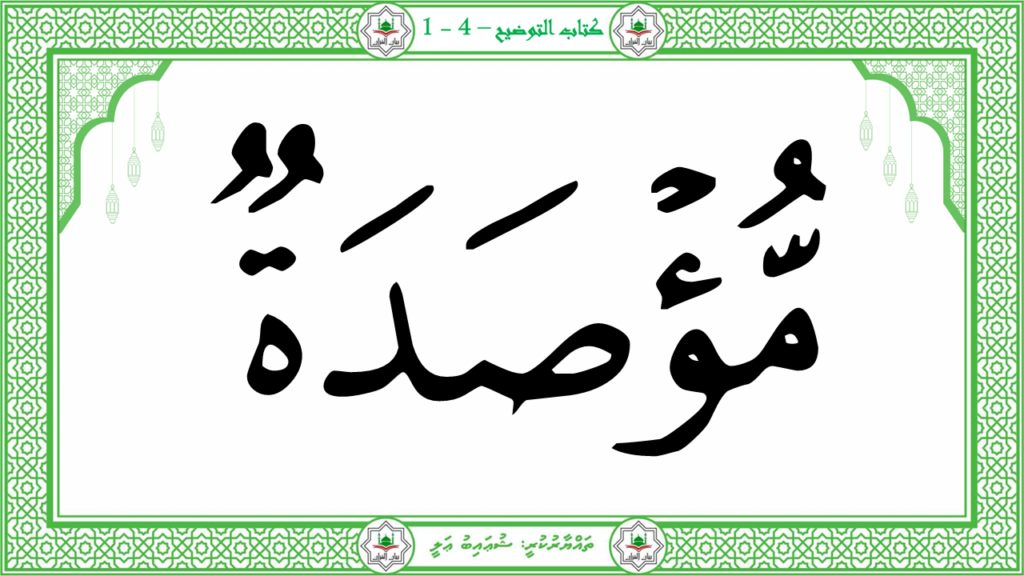 كتاب التوضيح – 4 - 1
مُّؤْصَدَةٌ
ތައްޔާރުކުރީ: ޝުޢައިބު ޢަލީ